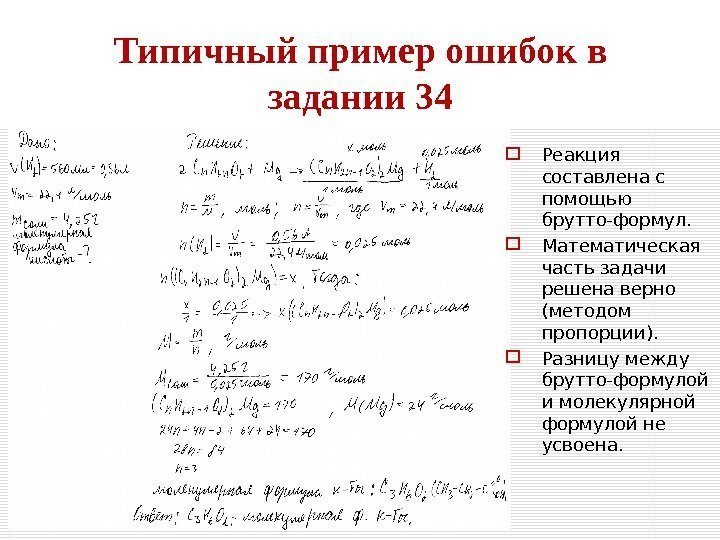 Типичный пример ошибок в
задании 34
Дано:
V(H₂)=560мл=0,56л
Vm=22,4 л/моль
m соли=4,25г
молекулярная
формула
кислоты-?
Решение:
x моль 0,025 моль
2 CnH2nO2 + Mg → (CnH2n-1O2)2Mg + H2
1 моль 1 моль
n = m/M, моль; n = V/Vm, где Vm = 22,4 л/моль
n(H2) = V/Vm = 0,56л/22,4 л/моль = 0,025 моль
n((CnH2n-1O2)2 Mg)=x, Тогда:
x/1 = 0,025/1 --> x((CnH2n-1O2)2Mg)=0,025 моль
M = m/n, г/моль
M = 4,25г/0,025моль = 170 г/моль
(CnH2n-1O2)2 Mg=170, M(Mg)=24 г/моль
24n+4n-2+64+24=170
28n=84
n=3
молекулярная формула к-ты: C3H6O2 (CH3-CH2-C
Ответ: C3H6O2- молекулярная ф. к-ты.
Реакция
составлена с
помощью
брутто-формул.
Математическая
часть задачи
решена верно
(методом
пропорции).
Разницу между
брутто-формулой
и молекулярной
формулой не
усвоена.